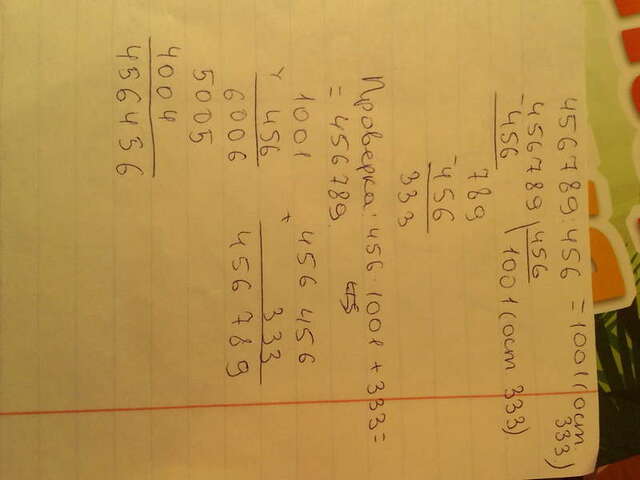 456789:456 =1001(ост.
333)
-456789|456
456 1001(ост 333)
789
-456
333
Проверка: 456·1001+333=
= 456789.
1001
×456
6006
5005
4004
456456
+456 456
333
456 789